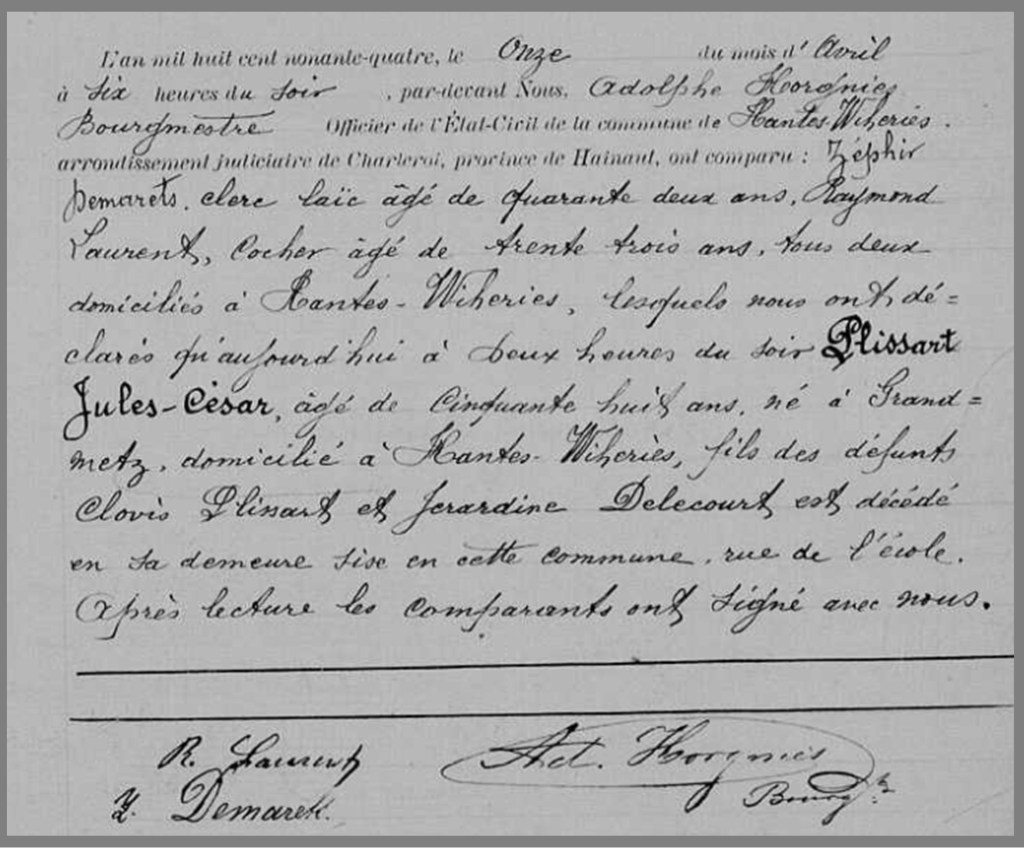 L'an mil huit cent nonante-quatre, le Onze du mois d'Avril
à six heures du soir, par-devant Nous, Adolphe Horgnies
Bourgmestre Officier de l'État-Civil de la commune de Hantes-Wiheries.
arrondissement judiciaire de Charleroi, province de Hainaut, ont comparu : Zéphir
Demarets, clerc laïc âgé de quarante deux ans, Raymond
Laurent, cocher âgé de trente trois ans, tous deux
domiciliés à Hantes-Wiheries, lesquels nous ont dé=
clarés qu'aujourd'hui à deux heures du soir Plissart
Jules-César, âgé de cinquante huit ans, né à Grand=
metz, domicilié à Hantes-Wiheries, fils des défunts
Clovis Plissart et Jerardine Delecourt est décédé
en sa demeure sise en cette commune, rue de l'école.
Après lecture les comparants ont signé avec nous.
R. Laurent
Ad. Horgnies
Z. Demarets.
Bourg